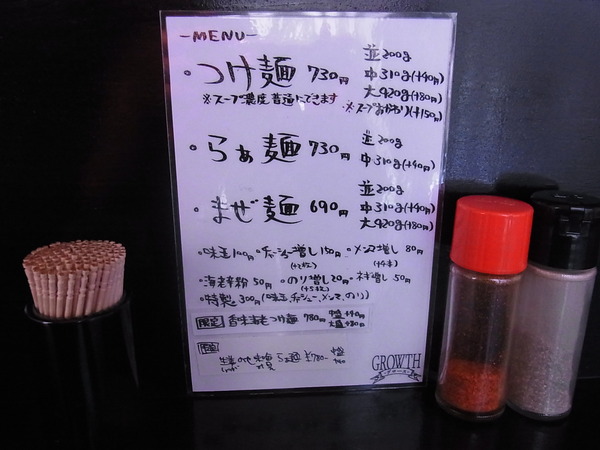 -MENU-
・つけ麺 730円 並200g
中310g(+40円)
大420g(+80円)
※スープ濃度普通にできます ※スープおかわり(+150円)
・らぁ麺 730円 並200g
中310g(+40円)
・まぜ麺 690円 並200g
中310g(+40円)
大420g(+80円)
・味玉100円 ・チャーシュー増し150円 ・メンマ増し 80円
・海老辛粉50円 ・のり増し20円 ・ネギ増し 50円
・特製 300円(味玉、チャーシュー、メンマ、のり)
限定 香味海老つけ麺 780円 中盛+40円
大盛+80円
らぁ麺 ¥780-
GROWTH